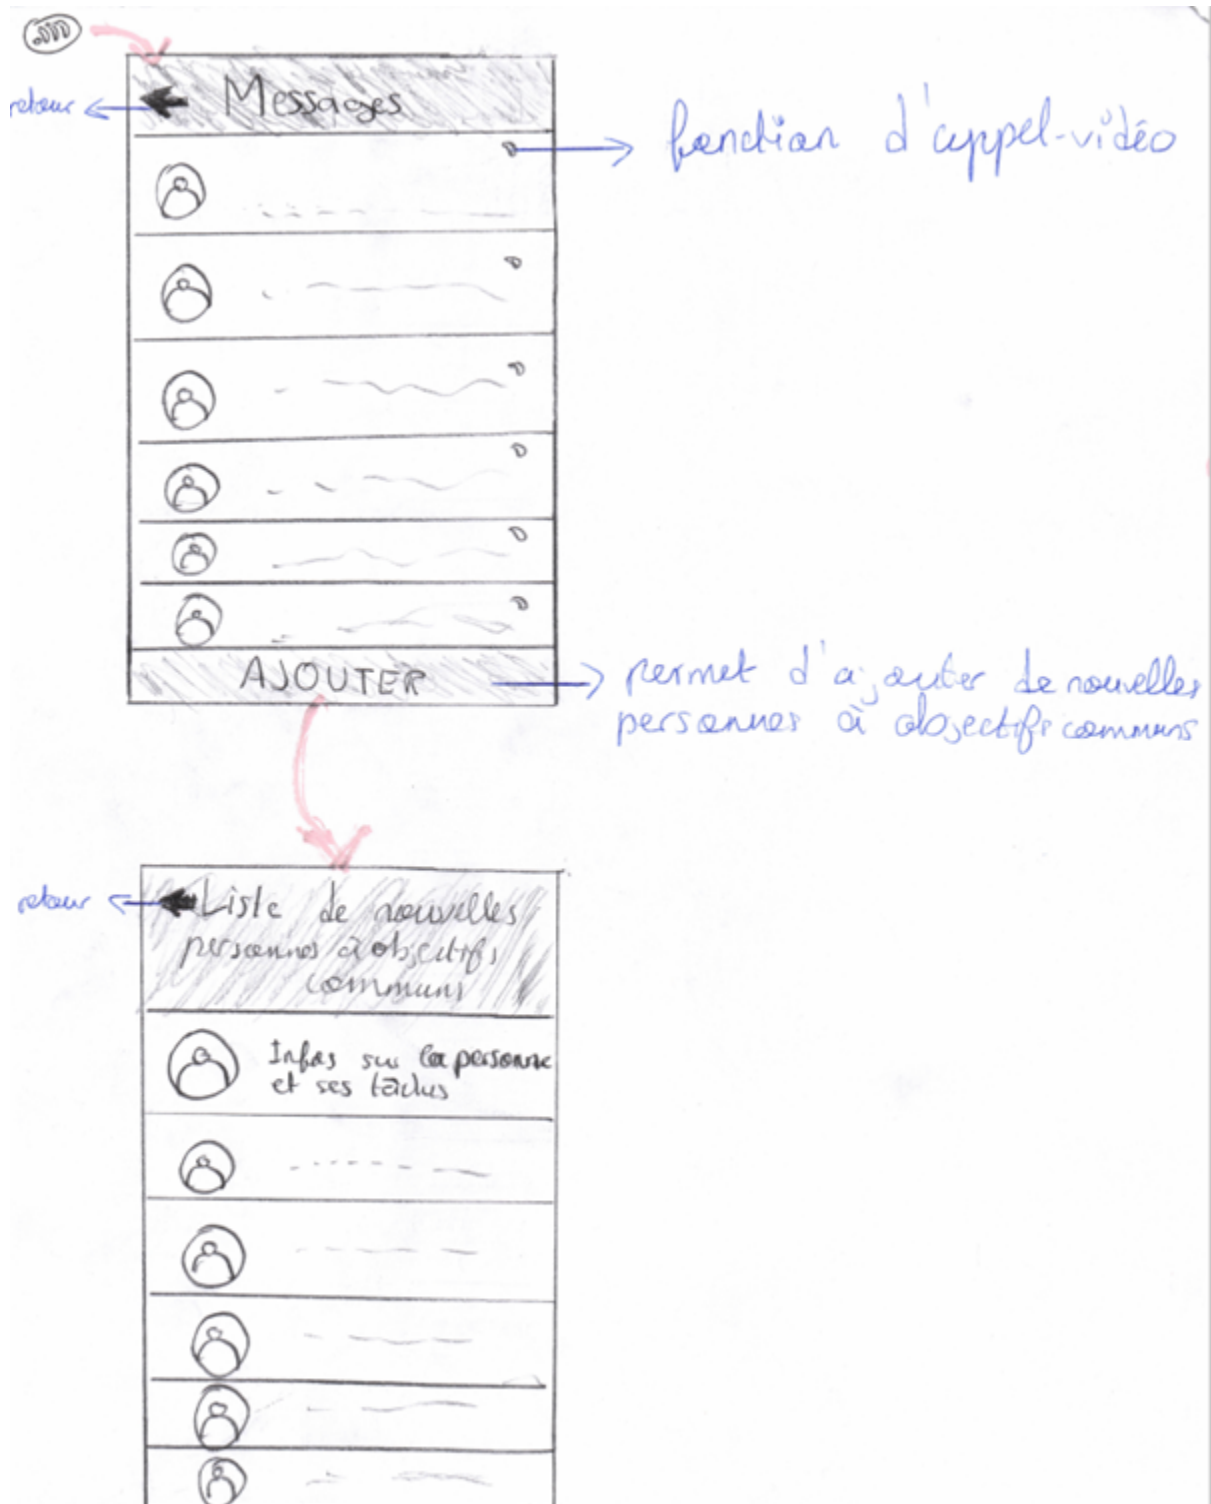 Messages
retour
fonction d'appel-vidéo
AJOUTER
permet d'ajouter de nouvelles
personnes à objectifs communs
retour
Liste de nouvelles
personnes à objectifs
communs
Infos sur la personne
et ses tâches